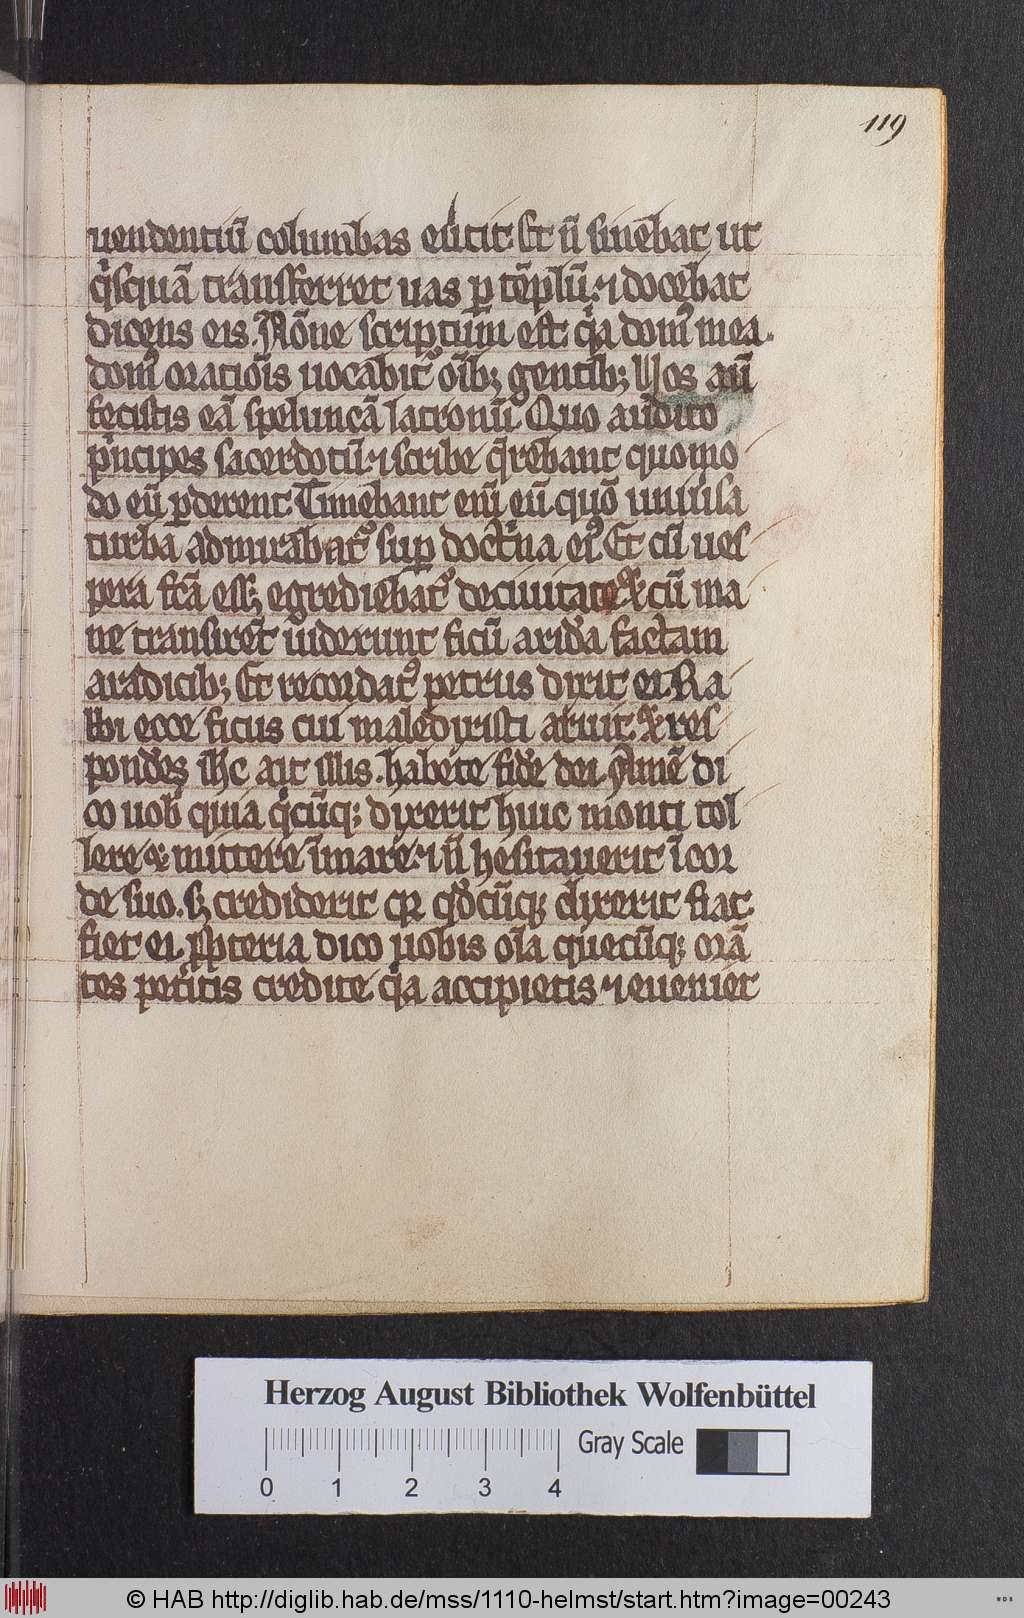 119
uendentiū columbas euͥcit. Et n̄ sinebat ut
qͥsquā transferret uas ꝑ tēplū. ⁊ docebat
dicens eis. Nōne scriptum est qͥa domꝰ mea
domꝰ orationis uocabitᷣ oīb; gentib; Uos aūt
fecistis eā speluncā latronū. Quo audito
pͥncipes sacerdotū ⁊ scribe qͥrebant quomo
do eū ꝑderent. Timebant enī eū quō uniuͥsa
turba admirabatᷣ suꝑ doctͥna eiꝰ Et cū ues
pera fc̄a ess; egrediebatᷣ deciuitate. & cū ma
ne transirēt uiderunt ficū aridā factam
aradicib; Et recordatꝰ petrus dixit ei. Ra
bbi ecce ficus cui maledixisti aruit. & res
pondēs ih̄c ait illis. habete fidē dei. Amē di
co uob̄ quia qͥcūq; dixerit huic monti tol
lere & mittere ī mare. ⁊ n̄ hesitauerit ī cor
de suo. s; crediderit qꝛ qͦdcūq; dixerit fiat
fiet ei. Ꝓpterea dico uobis oīa quecūq; orā
tes petitis credite qͥa accipietis ⁊ eueniet
Herzog August Bibliothek Wolfenbüttel
Gray Scale
0 1 2 3 4
© HAB http://diglib.hab.de/mss/1110-helmst/start.htm?image=00243